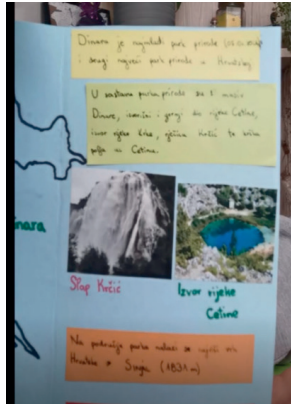 Dinara je najmlađi park prirode
i drugi najveći park prirode u Hrvatskoj
U sastavu parka prirode su i masiv
Dinare, izvorišni i gornji dio rijeke Cetine,
izvor rijeke Krke, rječica Krčić te krška
polja uz Cetinu.
nara
Slap Krčić
Izvor rijeke
Cetine
Na području parka nalazi se najviši vrh
Hrvatske Sinjal (1831 m)